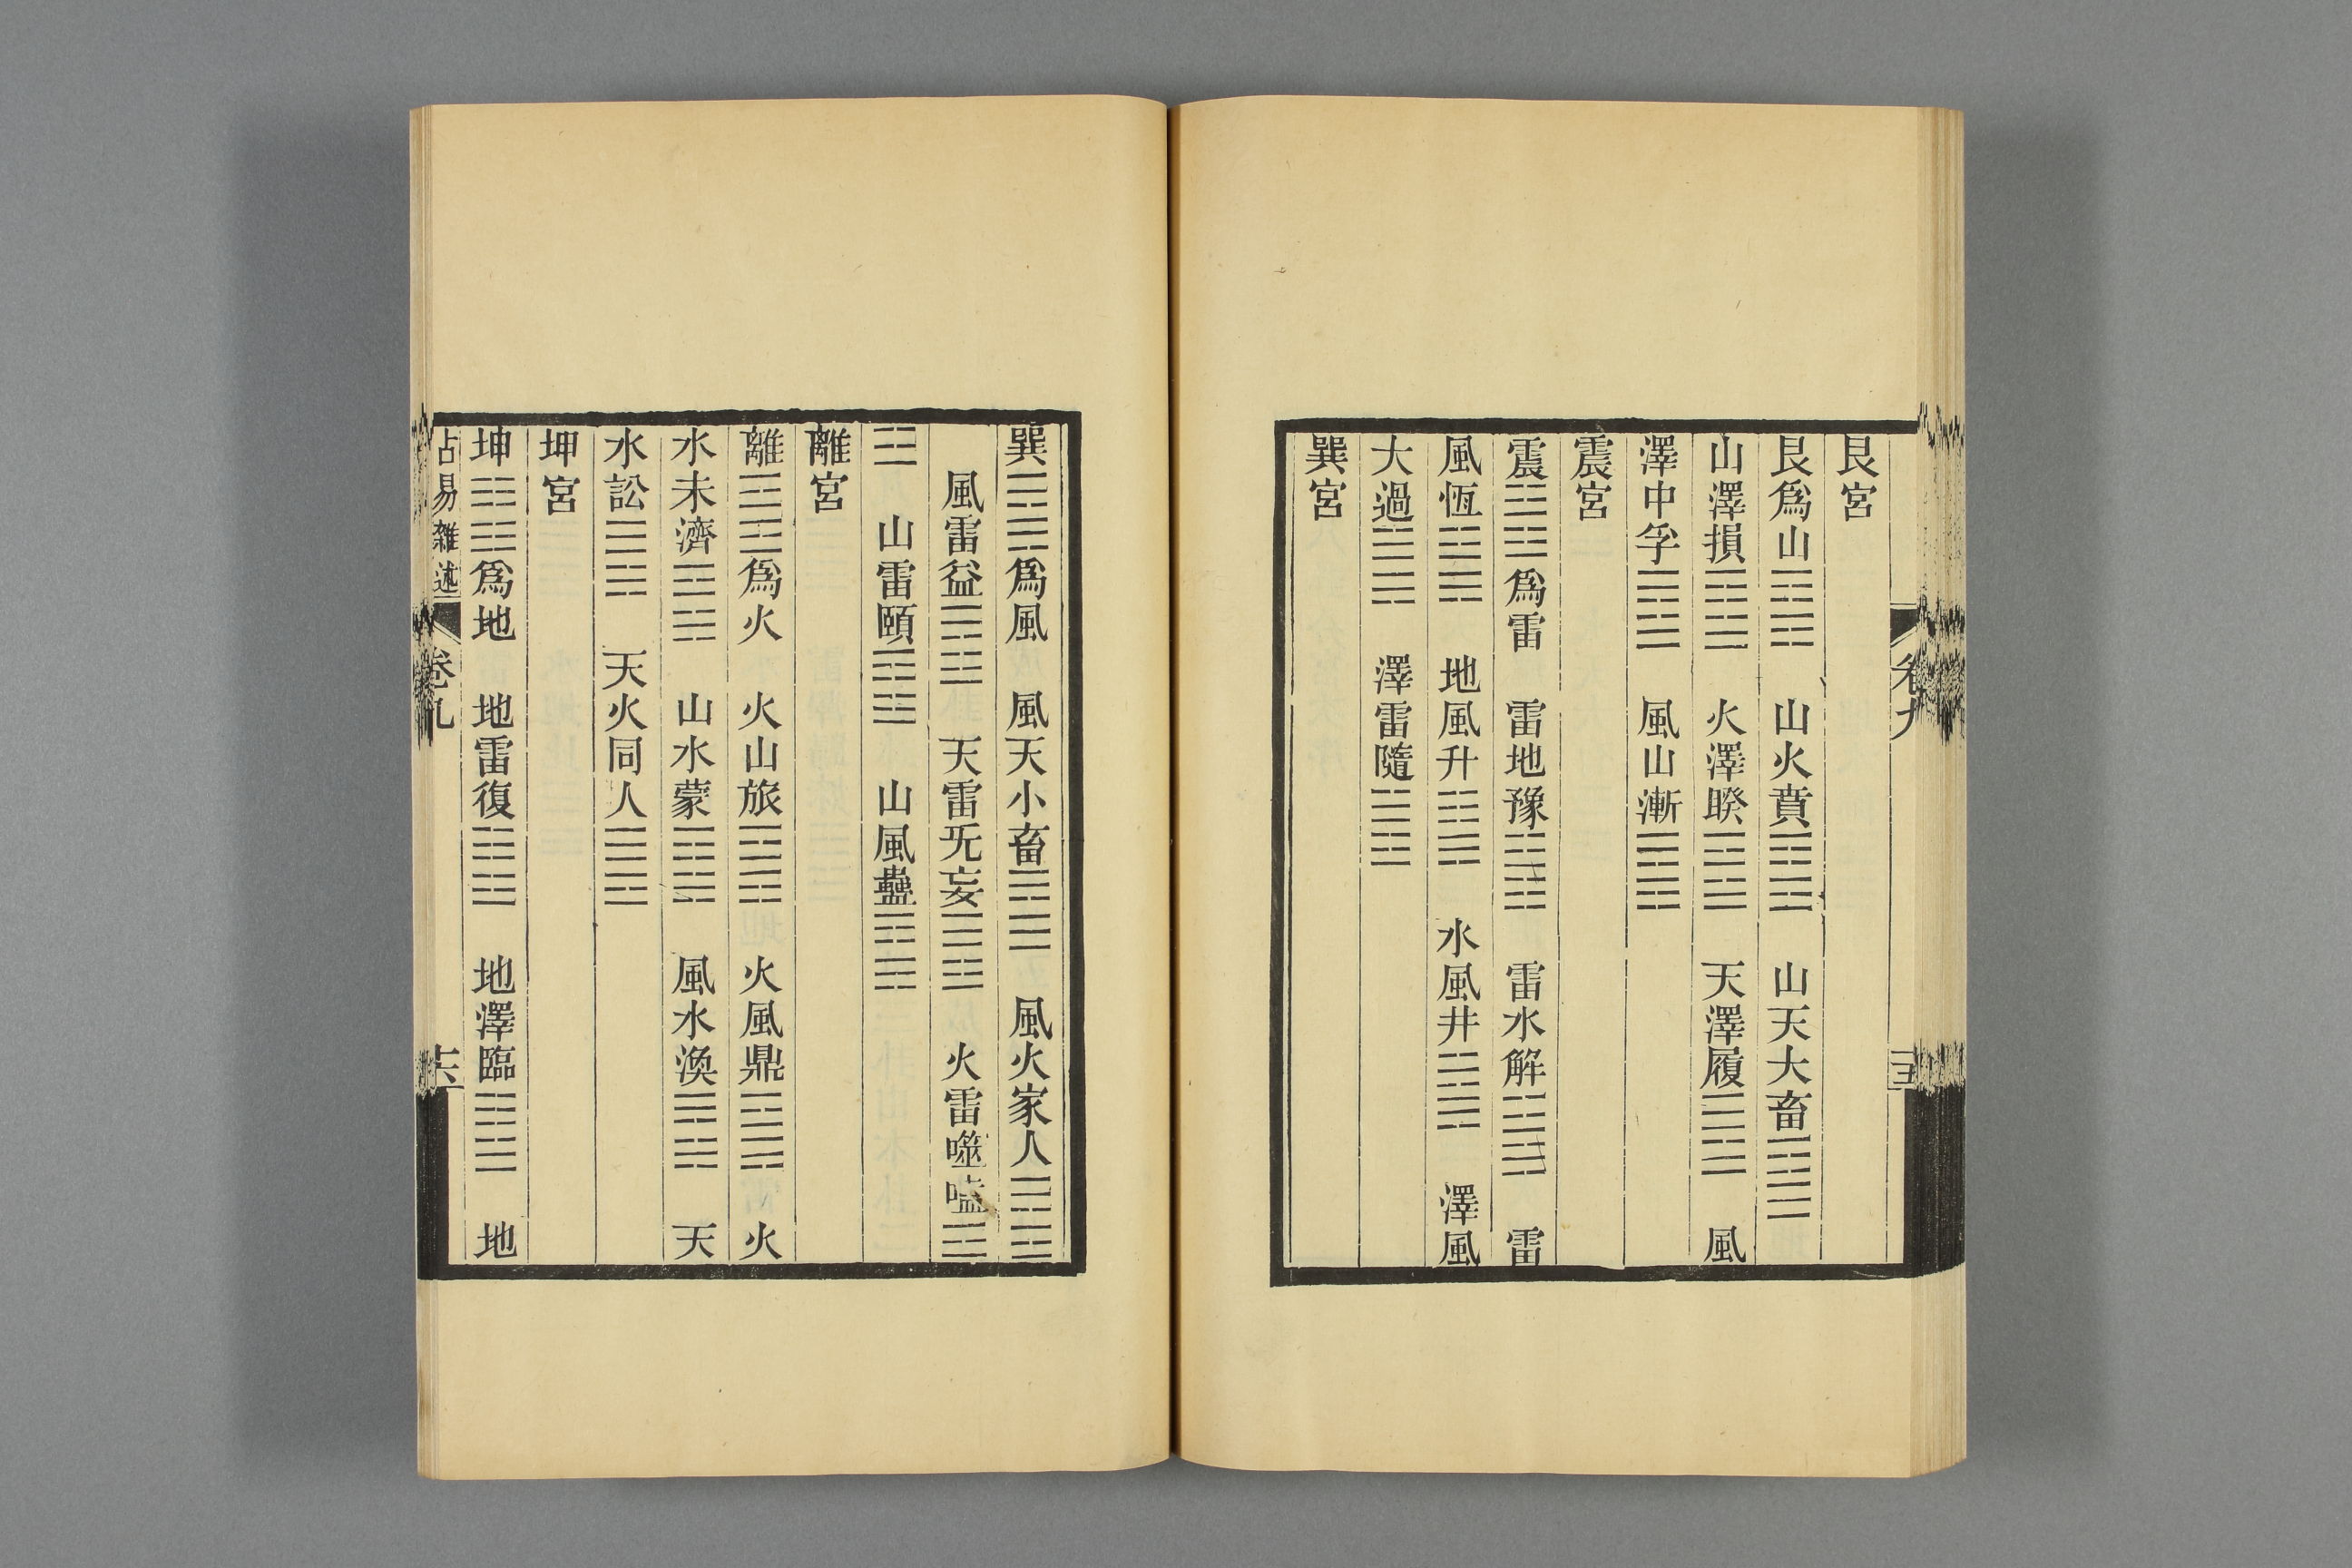 卷九
艮宮
艮爲山䷳　山火賁䷕　山天大畜䷙
山澤損䷨　火澤睽䷥　天澤履䷉　風
澤中孚䷼　風山漸䷴
震宮
震䷲爲雷　雷地豫䷏　雷水解䷧　雷
風恆䷟　地風升䷭　水風井䷯　澤風
大過䷛　澤雷隨䷐
巽宮
巽䷸爲風　風天小畜䷈　風火家人䷤
風雷益䷩　天雷无妄䷘　火雷噬嗑☲
☳　山雷頤䷚　山風蠱䷑
離宮
離䷝爲火　火山旅䷷　火風鼎䷱　火
水未濟䷿　山水蒙䷃　風水渙䷺　天
水訟䷅　天火同人䷌
坤宮
坤䷁爲地　地雷復䷗　地澤臨䷒　地
占易雜述　卷九　十六